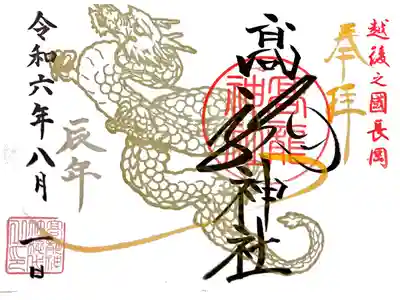 越後之國長岡
奉拝
髙龍神社
高龍神社
辰年
令和六年八月
一日